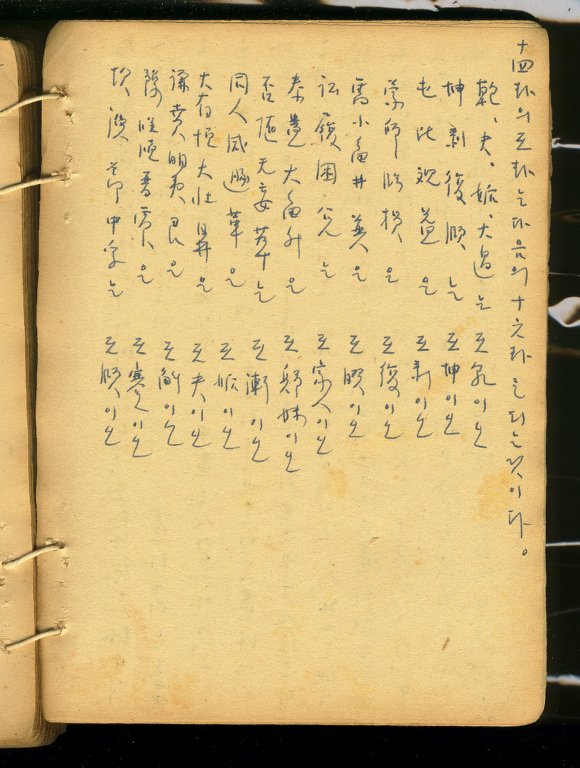 十四卦의 互卦는 다음의 十六卦로 되는것이다。
乾、夬、姤、大過는 互乾이오
坤 剝 復 頤는 互坤이오
屯 比 観 益은 互剥이오
蒙 師 臨 損은 互復이오
需 小畜 井 巽은 互睽이오
訟 履 困 兌는 互家人이오
泰 蠱 大畜 升은 互歸妹이오
否 随 无妄 萃는 互漸이오
同人 咸 遯 革은 互姤이오
大有 恒 大壯 鼎은 互夬이오
謙 賁 明夷 艮은 互解이오
豫 噬嗑 晋 震은 互蹇이오
坎 渙 節 中孚는 互頤이오